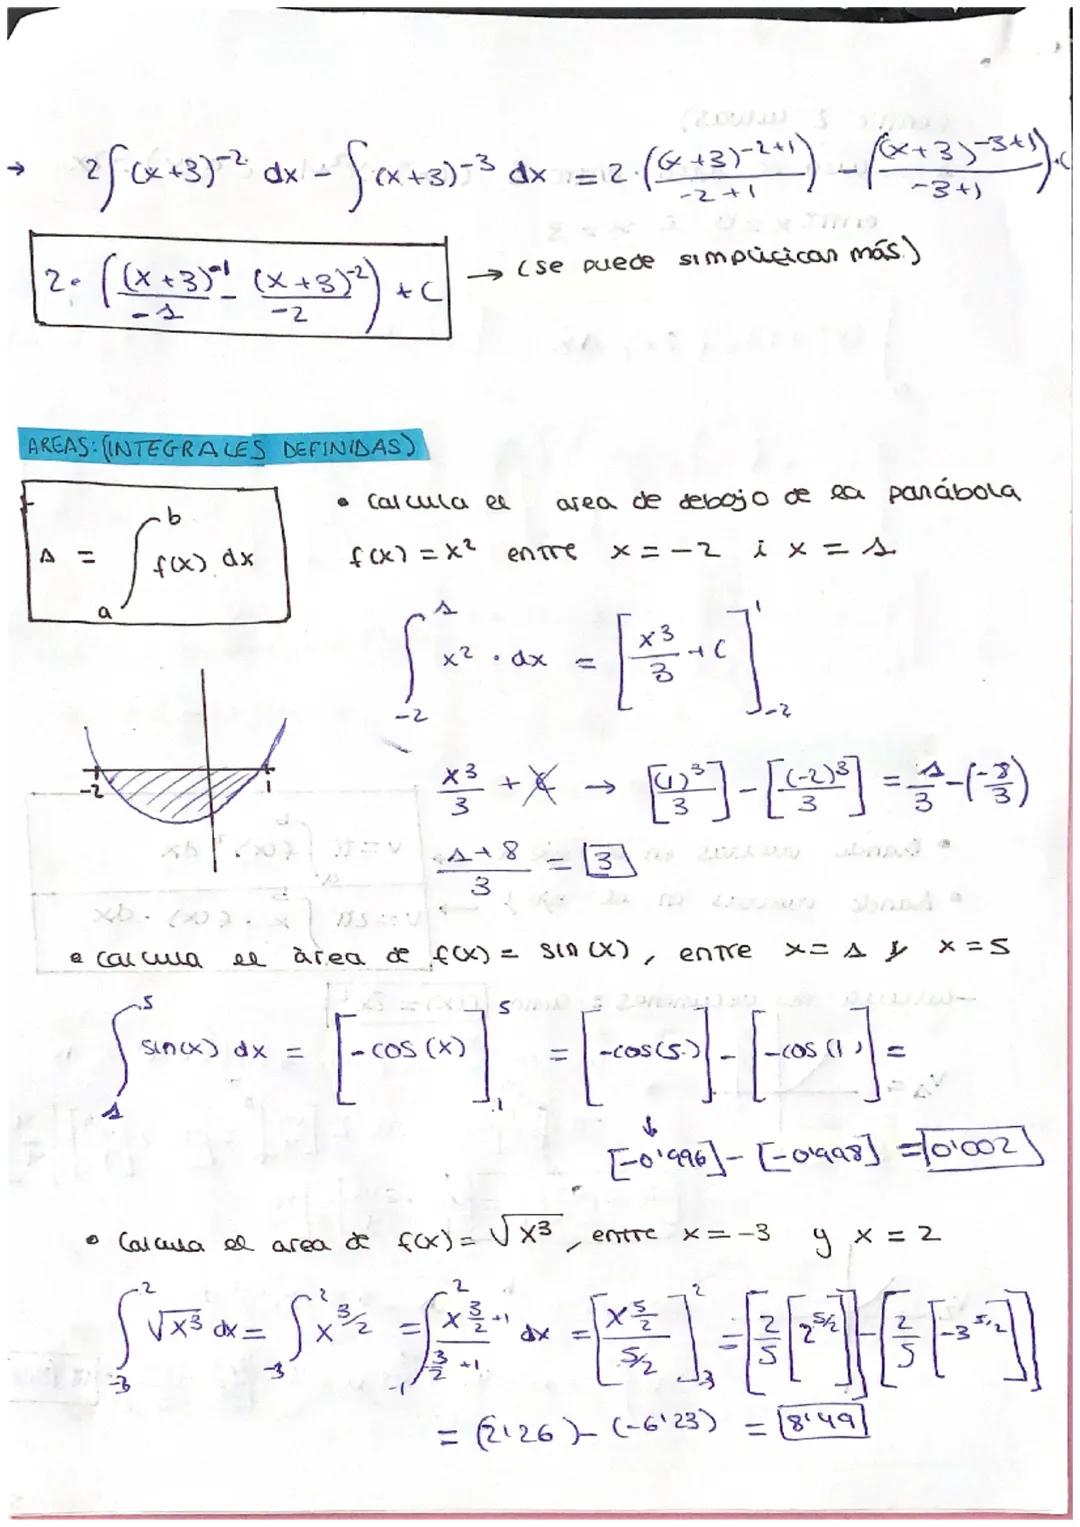 → 2∫(x+3)⁻² dx - ∫(x+3)⁻³ dx = 2·((x+3)⁻²⁺¹/-2+1) - ((x+3)⁻³⁺¹/-3+1)+C
2·((x+3)⁻¹/-1 - (x+3)⁻²/-2) + C → (se puede simplificar más)
AREAS: (INTEGRALES DEFINIDAS)
A = ∫ₐᵇ f(x) dx
• Calcula el area de debajo de la parábola
f(x) = x² entre x = -2 i x = 1
∫₋₂¹ x² · dx = [x³/3 + C]₋₂¹
-2 1
x³/3 + C → [(1)³/3] - [(-2)³/3] = 1/3 - (-8/3)
1+8/3 = 3
• Calcula el àrea de f(x) = sin(x), entre x = 1 y x = 5
∫₁⁵ sin(x) dx = [-cos(x)]₁⁵ = [-cos(5)] - [-cos(1)] =
↓
[-0'996] - [-0'998] = 0'002
• Calcula el area de f(x) = √x³, entre x = -3 y x = 2
∫₋₃² √x³ dx = ∫₋₃² x^3/2 = ∫₋₁² x^(3/2+1)/(3/2+1) dx = [x^5/2 / 5/2]₋₃² = [2/5 [2^5/2]] - [2/5 [-3^5/2]]
= (2'26) - (-6'23) = 8'49